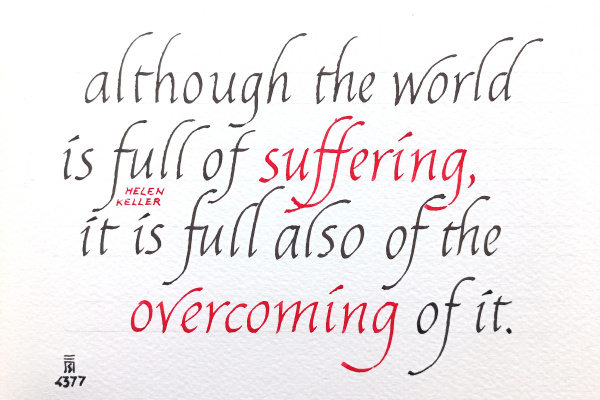 although the world
is full of suffering,
HELEN
KELLER
it is full also of the
overcoming of it.
4377